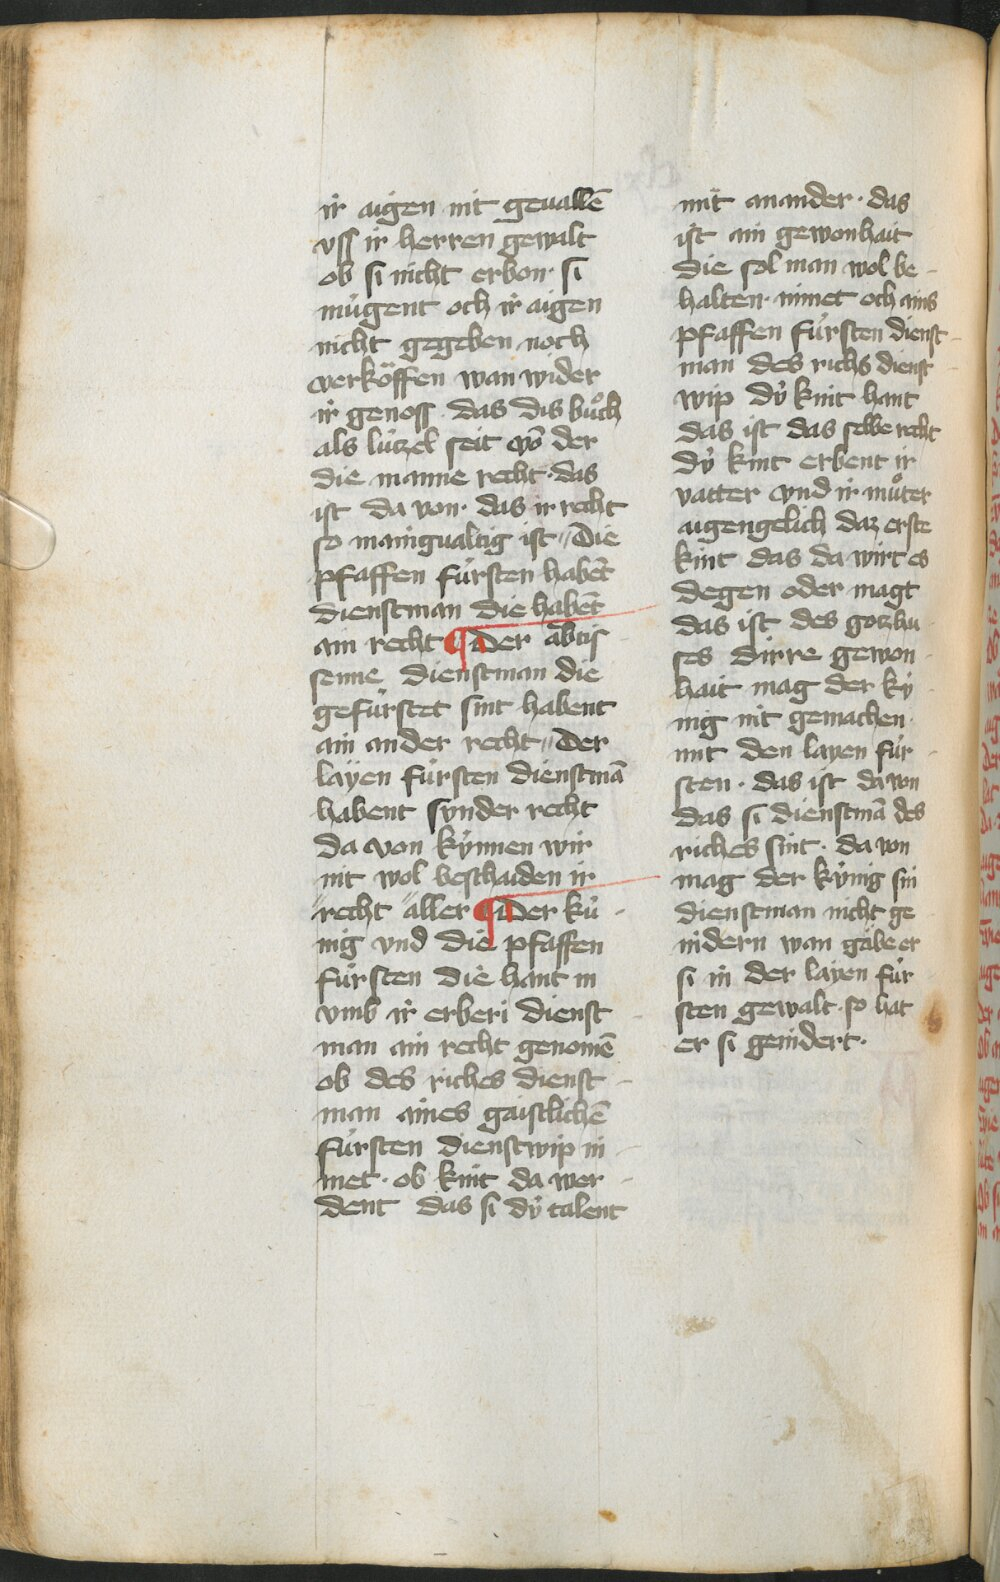 ir aigen nit geuallē
vss ir herren gewalt
ob si nicht erbon· si
mu̍gent och ir aigen
nicht gegeben noch
verköffen wan wider
ir genoss· das dis bůch
als lu̍zel seit vō der
die manne recht· das
ist da von· das ir recht
so manigualtig ist Die
pfaffen fu̍rsten habēt
dienstman die habēt
ain recht ¶ Der abtis
senne dienstman die
gefu̍rstet sint habent
ain ander recht Der
layen fu̍rsten dienstmā
habent synder recht
da von ky̍nnen wir
nit wol beschaiden ir
recht aller ¶ Der ku̍
nig vnd die pfaffen
fu̍rsten die hant in
vmb ir erberi dienst
man ain recht genomē
ob des riches dienst
man aines gaistlichē
fu̍rsten dienstwip ni
met· ob kint da wer
dent das si dy̍ talent
mit anander· das
ist ain gewonhait
die sol man wol be
halten· nimet och ains
pfaffen fu̍rsten dienst
man des richs dienst
wip dy̍ kint hant
das ist das selbe recht
dy̍ kint erbent ir
vatter vnd ir můter
aigengelich daz erste
kint das da wirt es
degen oder magt
das ist des gotzhu
ses dirre gewon
hait mag der ky̍
nig nit gemachen
mit den layen fu̍r
sten· das ist da von
das si dienstmā des
riches sint· da von
mag der ky̍nig sin
dienstman nicht ge
nidern wan gäbe er
si in der layen fu̍r
sten gewalt· so hat
er si genidert·